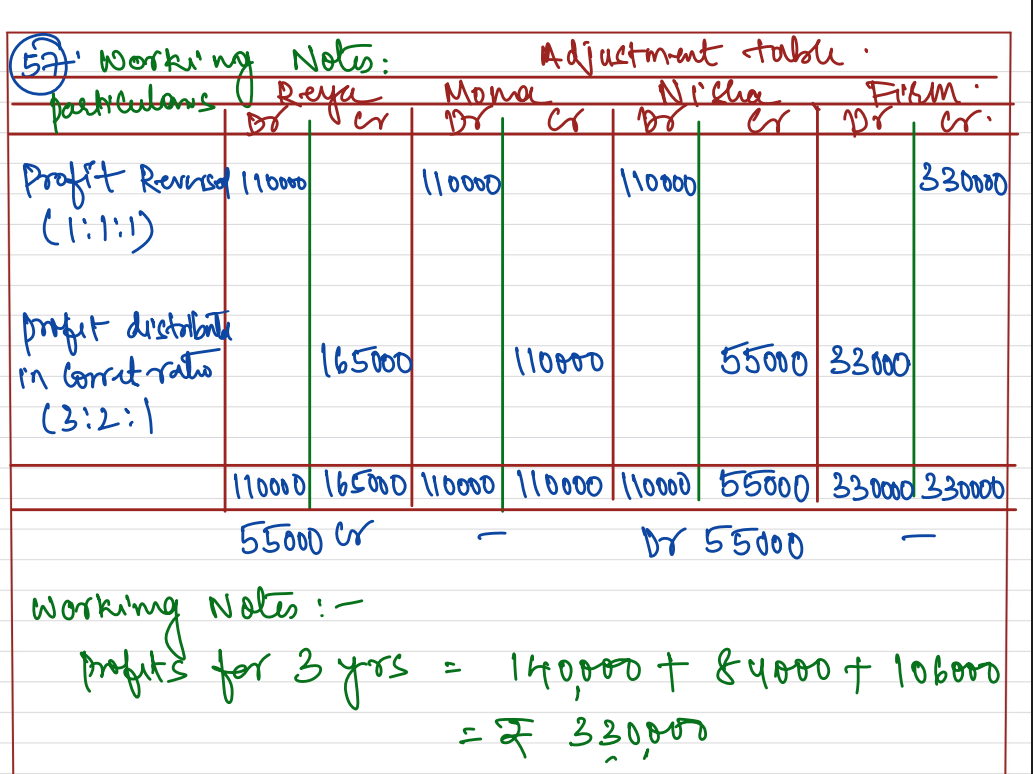 57 Working Notes: Adjustment table.
particulars Reya Mona Nisha Firm.
Dr Cr Dr Cr Dr Cr Dr Cr.
Profit Reversed 110000 110000 110000 330000
(1:1:1)
profit distribute
in Corret ratio 165000 110000 55000 33000
(3:2:1
110000 165000 110000 110000 110000 55000 330000 330000
55000 Cr — Dr 55000 —
Working Notes :-
Profits for 3 yrs = 140,000 + 84000 + 106000
= ₹ 330,000